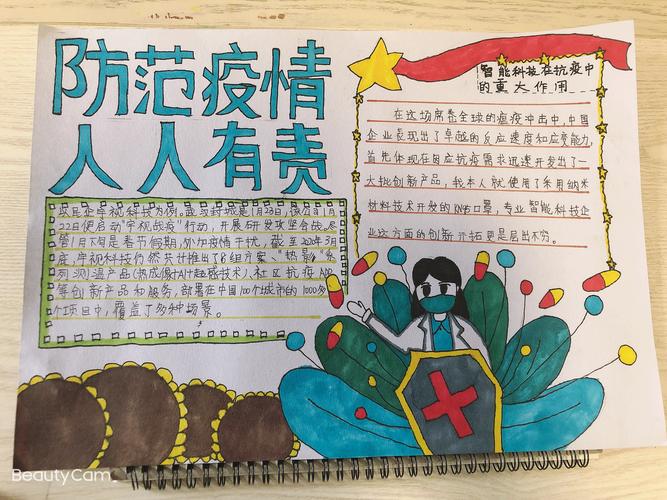 防范疫情
人人有责
智能科技在抗疫中
的重大作用
在这场席卷全球的瘟疫冲击中,中国
企业表现出了卓越的反应速度和应变能力,
首先体现在因应抗疫需求迅速开发出了一
大批创新产品,我本人就使用了采用纳米
材料技术开发的KN95口罩,专业智能科技企
业这方面的创新开拓更是层出不穷。
以民企宇视科技为例,武汉封城是1月23日,该公司1月
22日便启动"宇视战疫"行动,开展研发攻坚会战,尽
管1月下旬是春节假期,外加疫情干扰,截至2020年3月
底,宇视科技仍然共计推出了8组方案、"热影"
列测温产品(热成像+AI+超感技术)、社区抗疫
等创新产品和服务,部署在中国100个城市的1000多
个项目中,覆盖了多种场景。
BeautyCam